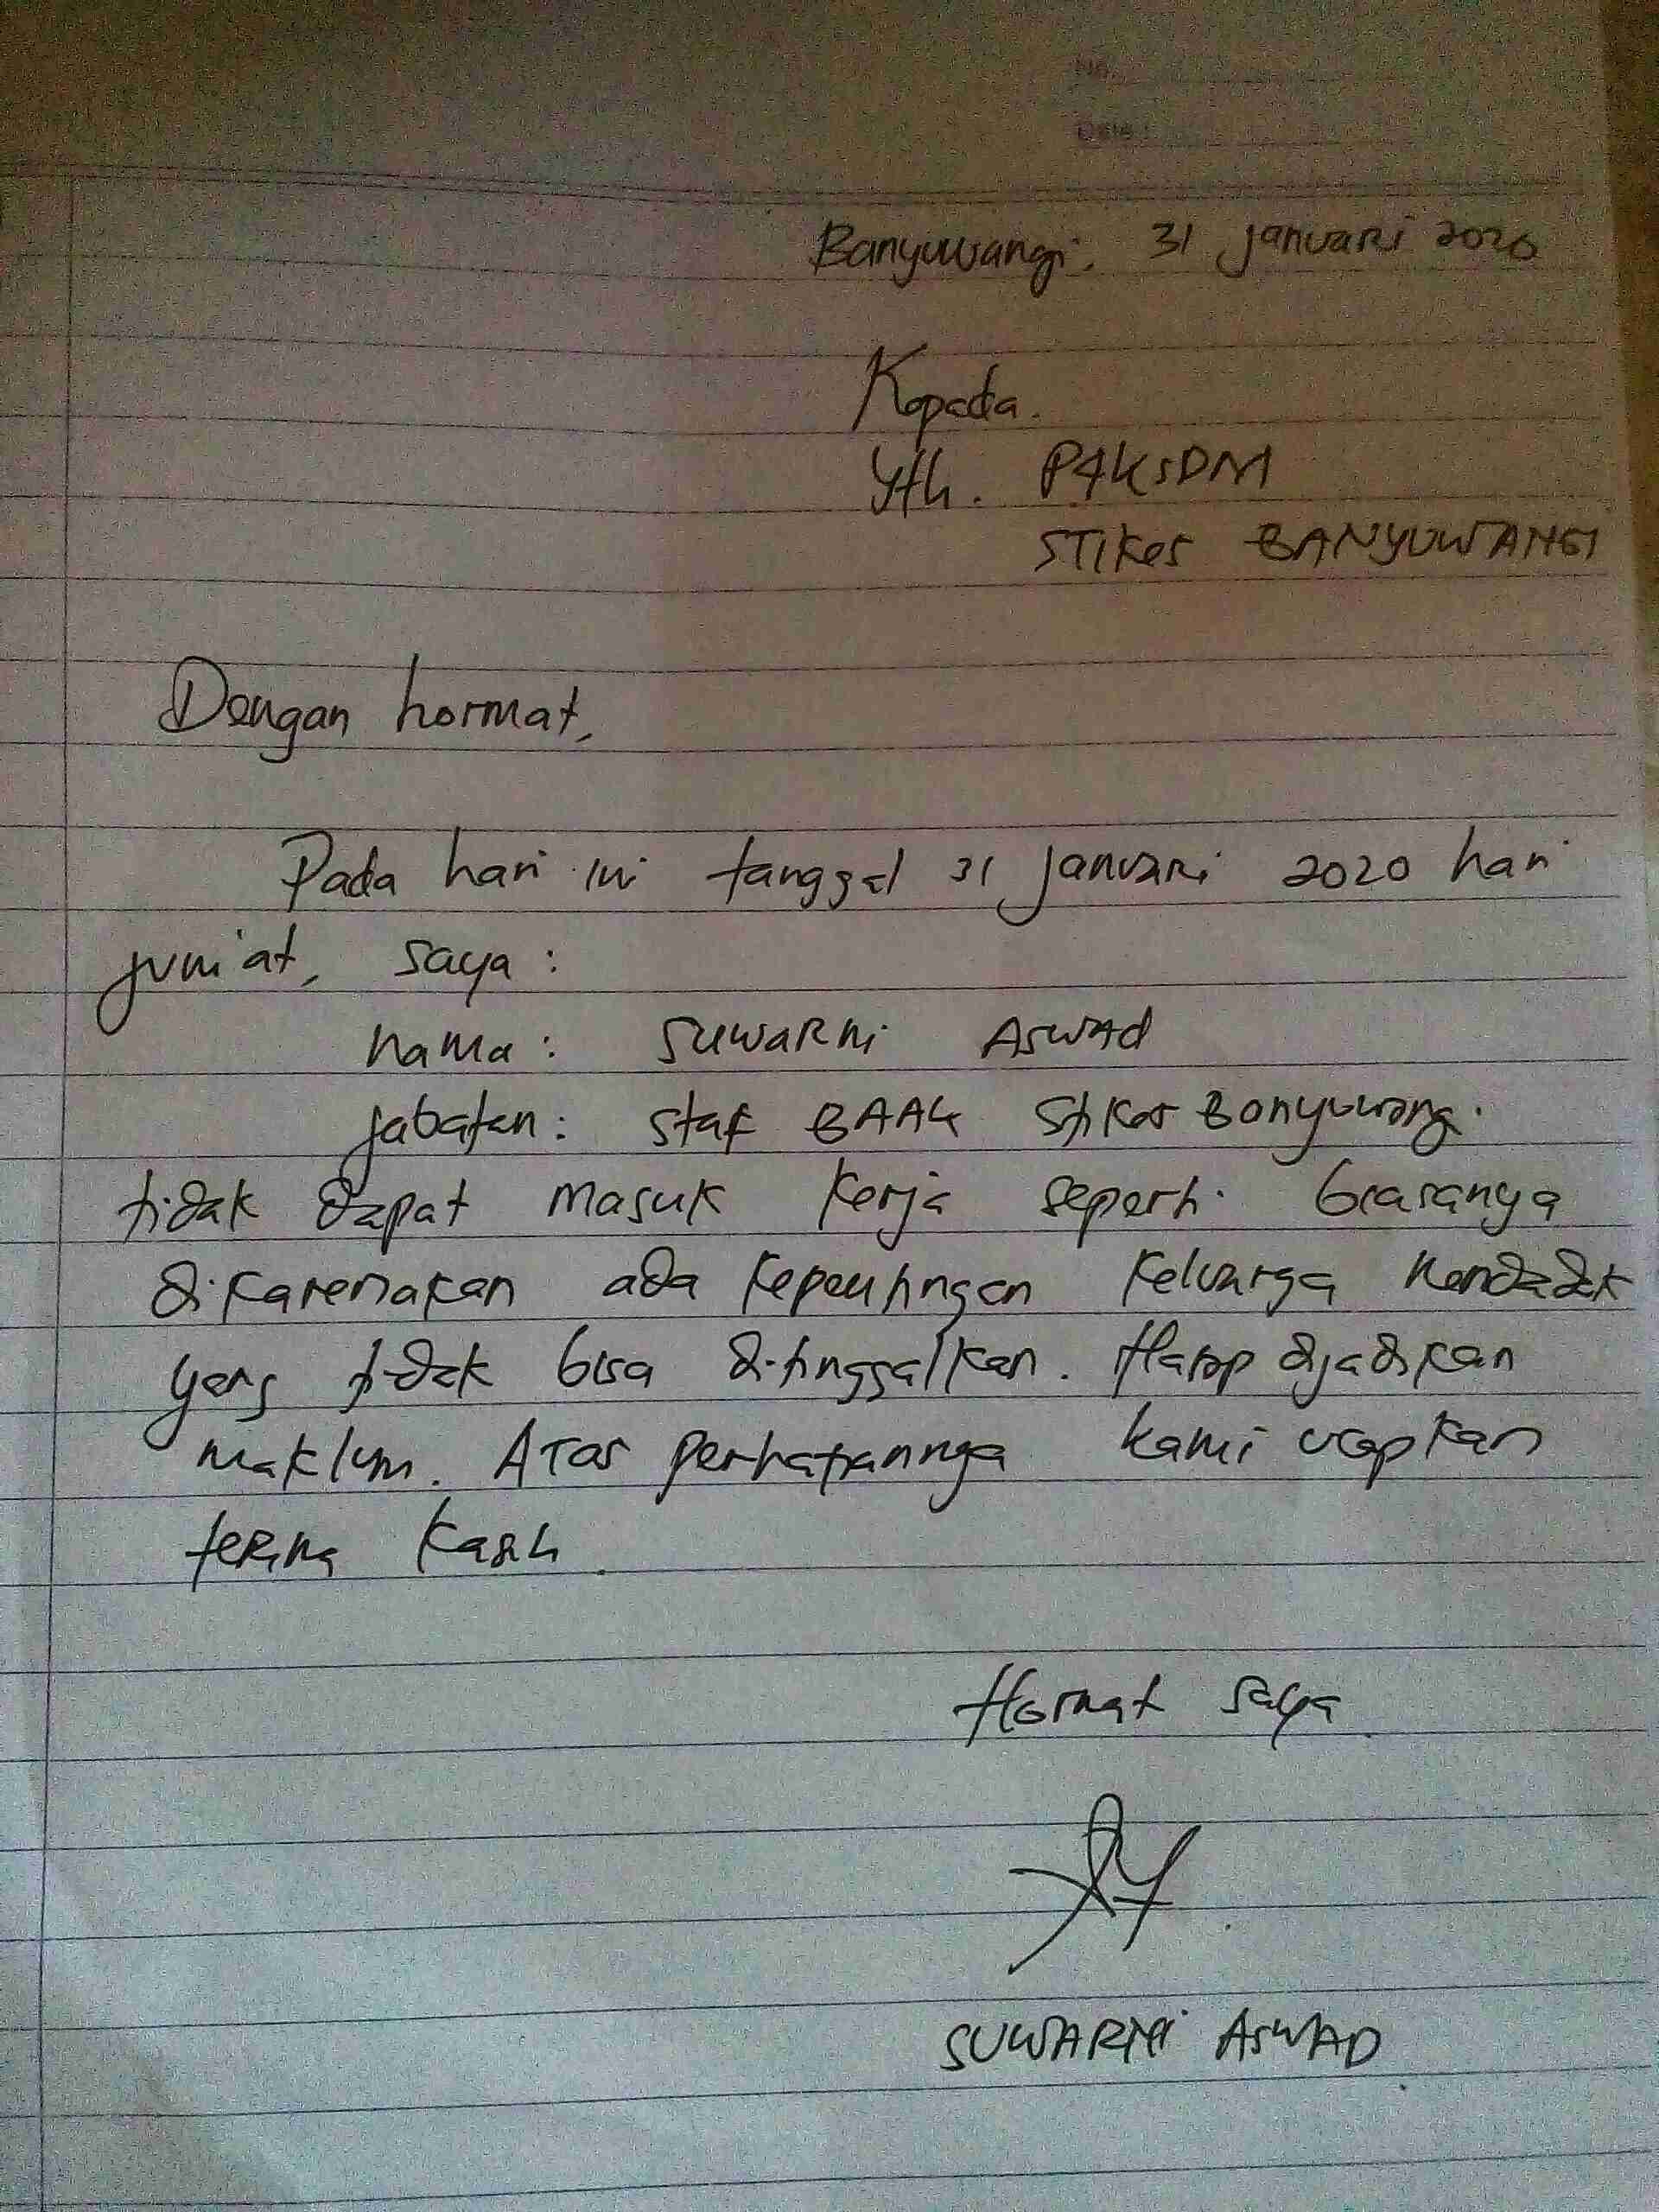 No.
Date :
Banyuwangi, 31 januari 2020
Kepada.
Yth. P4KSDM
STIKes BANYUWANGI
Dengan hormat,
Pada hari ini tanggal 31 januari 2020 hari
jum'at, saya :
nama : SUWARNI ASWAd
jabatan : staf BAAK Stikes Banyuwangi
tidak dapat masuk kerja seperti biasanya
dikarenakan ada kepentingan keluarga mendadak
yang tidak bisa ditinggalkan. Harap dijadikan
maklum. Atas perhatiannya kami ucapkan
terima kasih.
Hormat saya
SUWARNI ASWAD